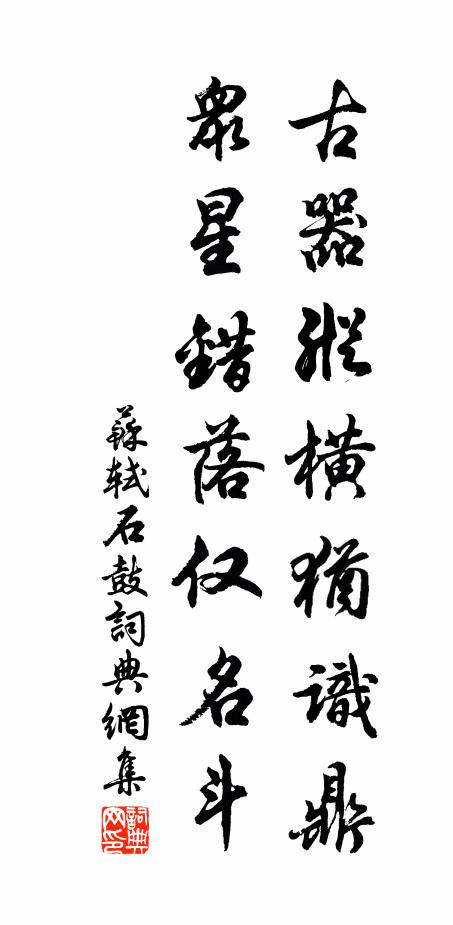 古器縱橫猶識鼎
眾星錯落仅名斗
蘇軾石鼓詞典網集
詞典网印